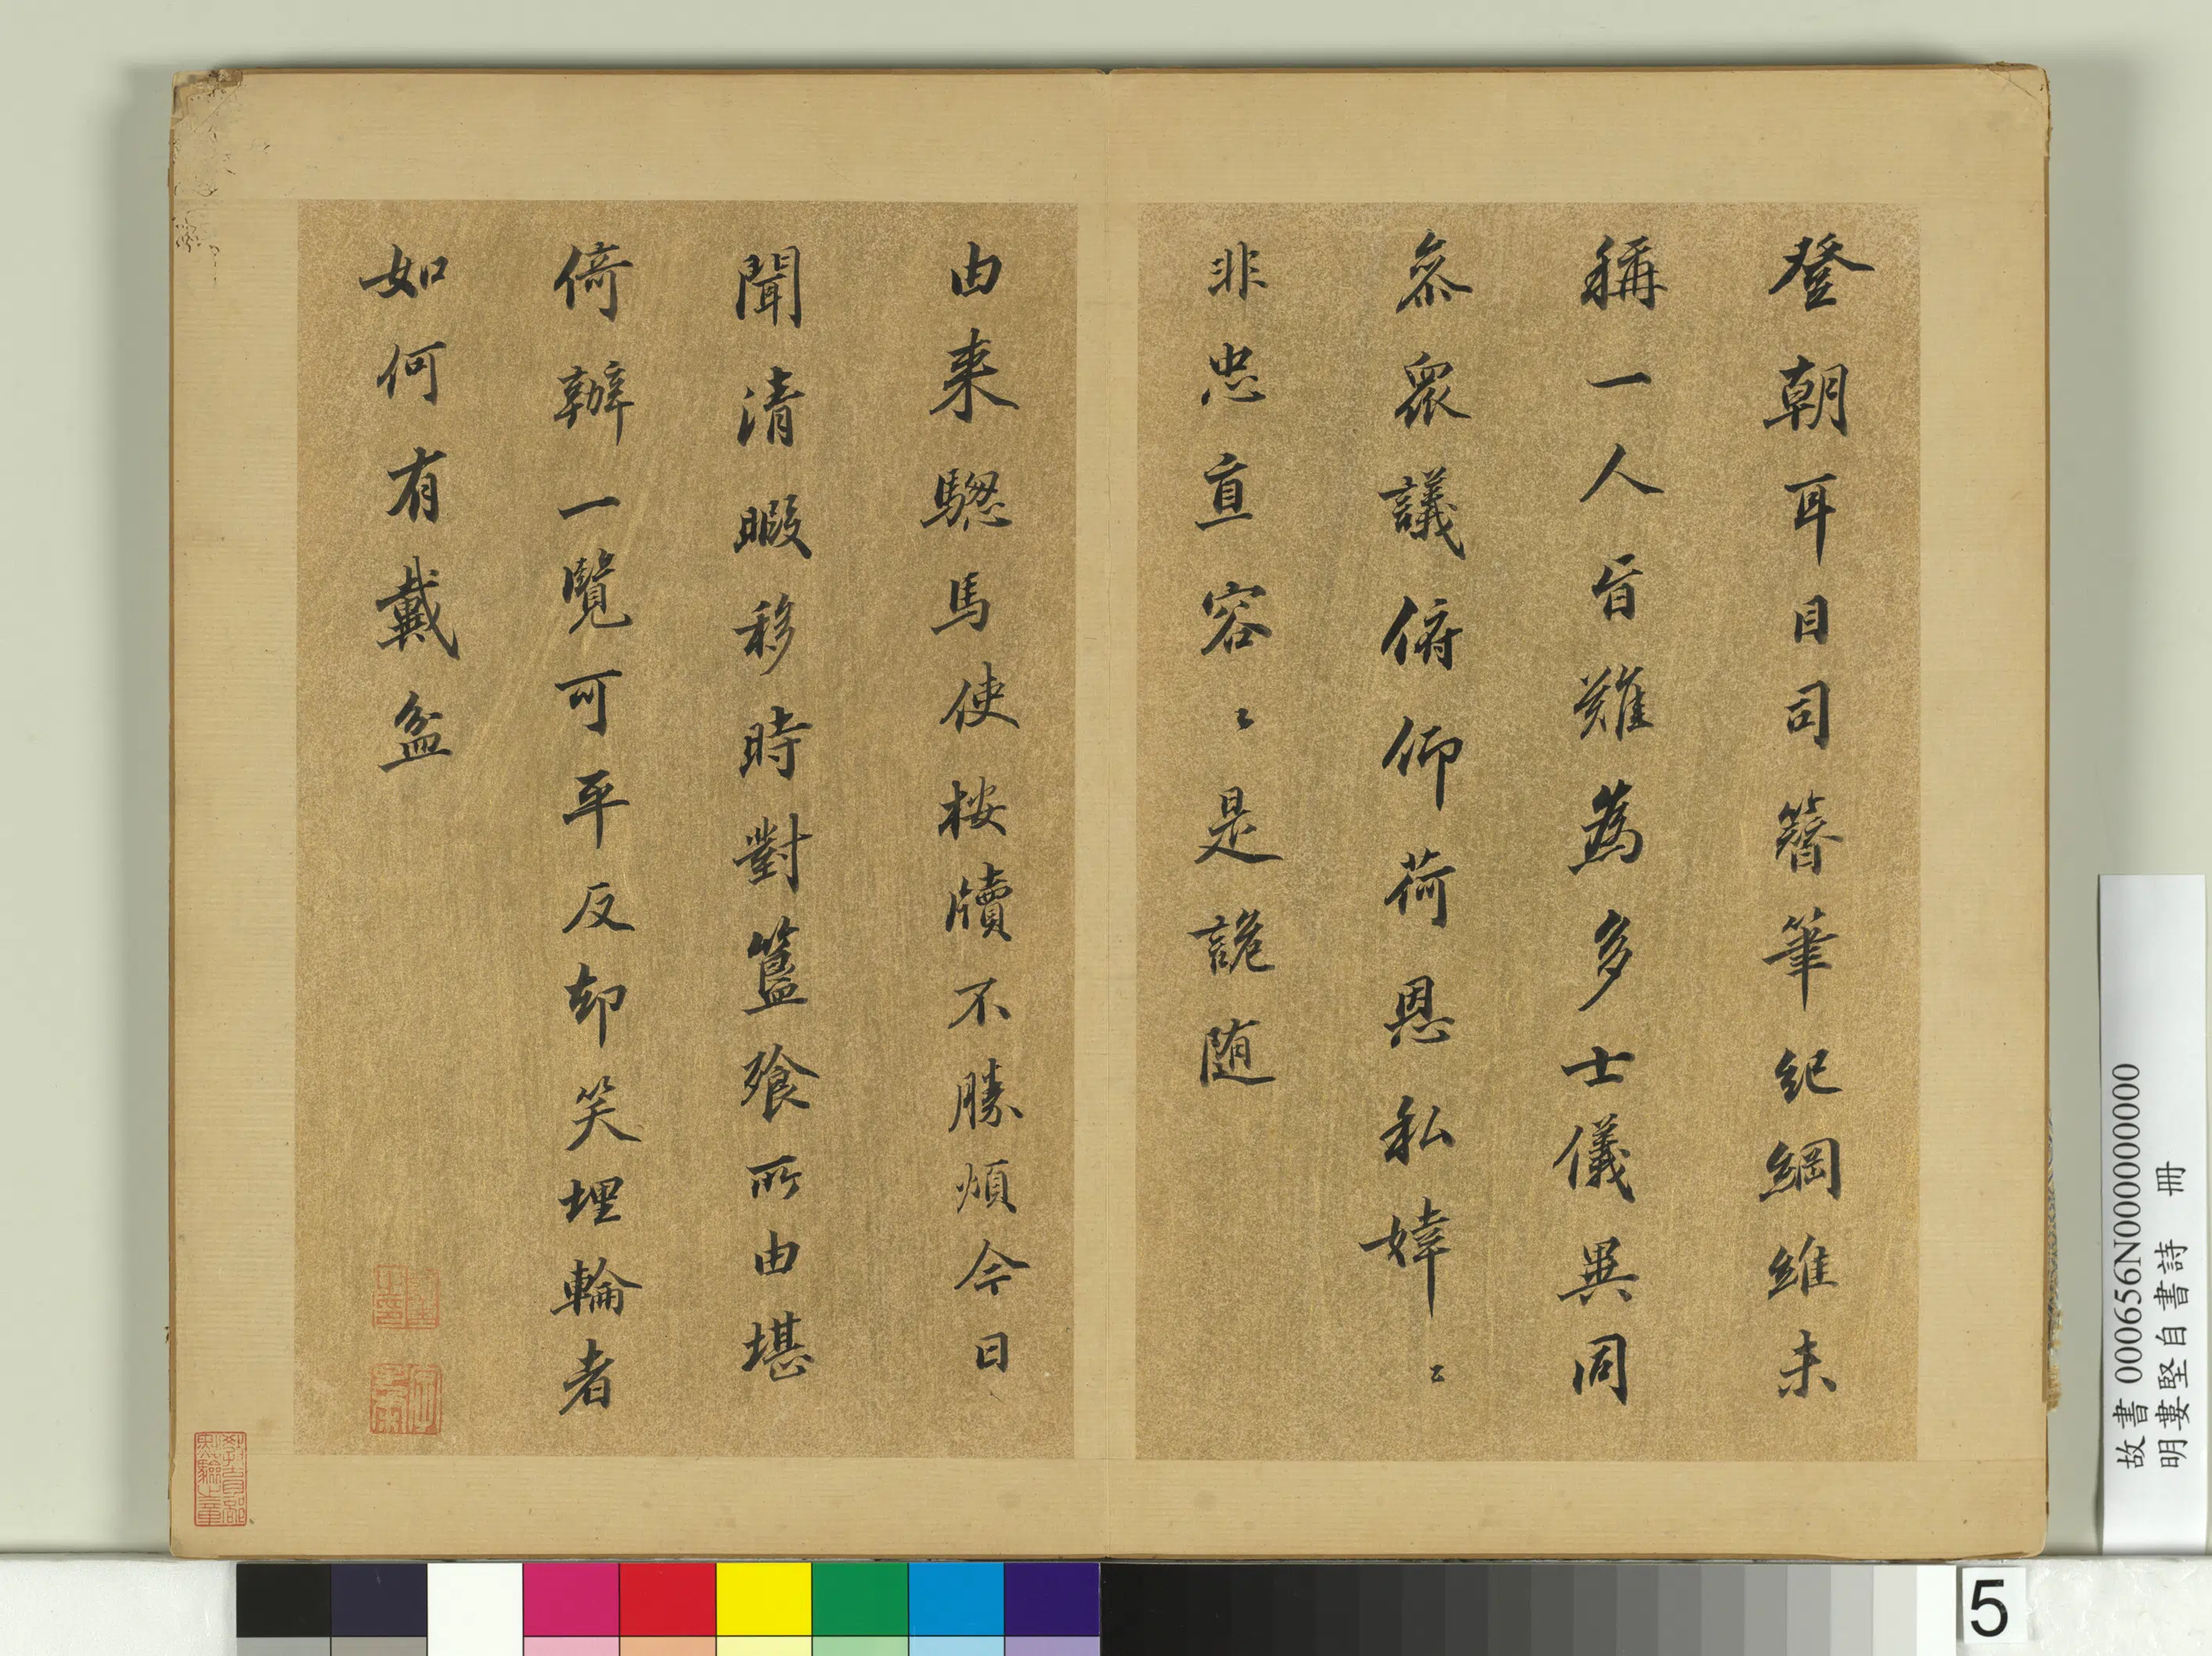 登朝耳目司簪筆紀綱維未
稱一人旨難為多士儀異同
叅眾議俯仰荷恩私婞〻
非忠直容〻是詭随
由来驄馬使桉牘不勝煩今日
聞清暇移時對簋飱所由堪
倚辦一覽可平反却笑埋輪者
如何有戴盆
故書000656N000000000
明婁堅自書詩 冊
5